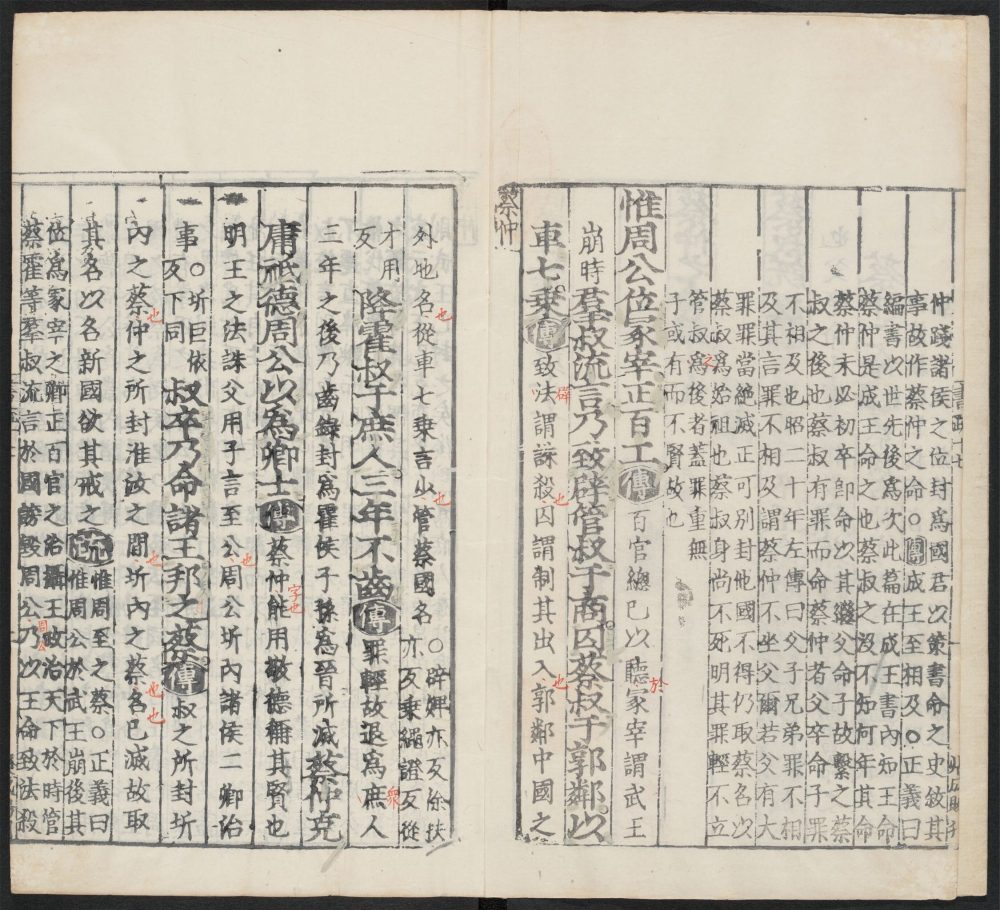 仲踐諸侯之位封爲國君以策書命之史敘其
事故作蔡仲之命○傳成王至相及○正義曰
編書以世先後爲次此篇在成王書內知王命
蔡仲是成王命之也蔡叔之沒不知何年其命
蔡仲未必初卒卽命以其繼父命子故繫之蔡
叔之後也蔡叔有罪而命蔡仲者父卒命子罪
不相及也昭二十年左傳曰父子兄弟罪不相
及其言罪不相及謂蔡仲不坐父爾若父有大
罪罪當絶滅正可別封他國不得仍取蔡名以
蔡叔爲始祖也蔡叔身尚不死明其罪輕不立
管叔爲後者蓋罪重無
之
子或有而不賢故也
惟周公位冢宰正百工傳百官總已以聽冢宰謂武王
於
崩時羣叔流言乃致辟管叔于商囚蔡叔于郭鄰以
車七乘傳致法謂誅殺囚謂制其出入郭鄰中國之
辟
也
也
蔡仲
外地名從車七乘言少管蔡國名
也
也
○辟婢亦反徐扶
亦反乘繩證反從
才用
反
降霍叔于庶人三年不齒傳罪輕故退爲庶人
衆
三年之後乃齒錄封爲霍侯子孫爲晉所滅蔡仲克
庸祇德周公以爲卿士傳蔡仲能用敬德稱其賢也
字也
明王之法誅父用子言至公周公圻內諸侯二卿治
也
事○圻巨依
反下同
叔卒乃命諸王邦之蔡傳叔之所封圻
內之蔡仲之所封淮汝之間圻內之蔡名已滅故取
也
也
也也
其名以名新國欲其戒之疏惟周至之蔡○正義曰
惟周公於武王崩後其
位爲冢宰之卿正百官之治攝王政治天下於時管
蔡霍等羣叔流言於國謗毀周公乃以王命致法殺
周公